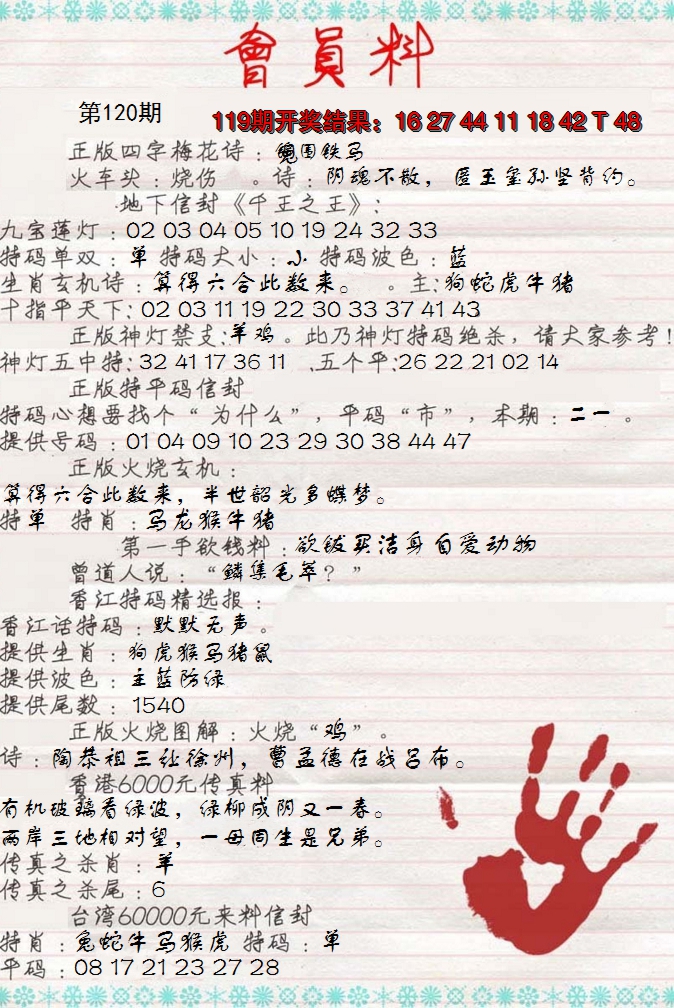 會員料
第120期
119期开奖结果：16 27 44 11 18 42 T 48
正版四字梅花诗：兔围铁马
火车头：烧伤 。诗：阴魂不散，匿玉玺孙坚背约。
地下信封《千王之王》：
九宝莲灯：02 03 04 05 10 19 24 32 33
特码单双：单 特码大小：小 特码波色：蓝
生肖玄机诗：算得六合此数来。 。主：狗蛇虎牛猪
十指平天下：02 03 11 19 22 30 33 37 41 43
正版神灯禁支：羊鸡。此乃神灯特码绝杀，请大家参考！
神灯五中特：32 41 17 36 11 .五个平：26 22 21 02 14
正版特平码信封
特码心想要找个“为什么”，平码“市”，本期：二一 。
提供号码：01 04 09 10 23 29 30 38 44 47
正版火烧玄机：
算得六合此数来，半世韶光多蝶梦。
特单 特肖：马龙猴牛猪
第一手欲钱料：欲钱买洁身自爱动物
曾道人说：“鳞集毛萃？”
香江特码精选报：
香江话特码：默默无声。
提供生肖：狗虎猴马猪鼠
提供波色：主蓝防绿
提供尾数：1540
正版火烧图解：火烧“鸡”。
诗：陶恭祖三让徐州，曹孟德在战吕布。
香港6000元传真料
有机玻璃看绿波，绿柳成阴又一春。
两岸三地相对望，一母同生是兄弟。
传真之杀肖：羊
传真之杀尾：6
台湾60000元来料信封
特肖：兔蛇牛马猴虎 特码：单
平码：08 17 21 23 27 28